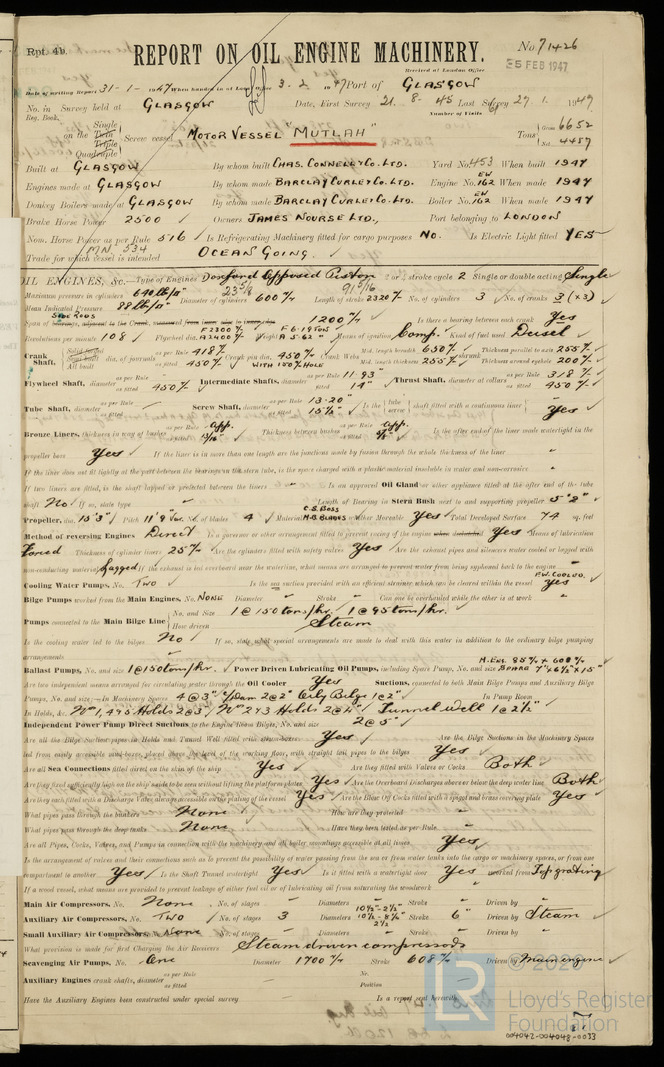 Rpt. 4b.
REPORT ON OIL ENGINE MACHINERY.
No 71426
Received at London Office
25 FEB 1947
Date of writing Report 31-1-1947 When handed in at Local Office 3.2.47 Port of GLASGOW
No. in Reg. Book. Survey held at GLASGOW Date, First Survey 21.8.45 Last Survey 29.1.1947
Number of Visits 61
on the Single Twin Triple Quadruple Screw vessel MOTOR VESSEL "MUTLAH" Tons Gross 6652 Net 4457
Built at GLASGOW By whom built CHAS. CONNELL & CO. LTD. Yard No. 453 When built 1947
Engines made at GLASGOW By whom made BARCLAY CURLE & CO. LTD. Engine No. EW 162 When made 1947
Donkey Boilers made at GLASGOW By whom made BARCLAY CURLE & CO. LTD. Boiler No. EW 162 When made 1947
Brake Horse Power 2500 Owners JAMES NOURSE LTD., Port belonging to LONDON
Nom. Horse Power as per Rule 516 Is Refrigerating Machinery fitted for cargo purposes NO. Is Electric Light fitted YES
MN. 534
Trade for which vessel is intended OCEAN GOING.
OIL ENGINES, &c. Type of Engines Doxford Opposed Piston 2 or 4 stroke cycle 2 Single or double acting Single
Maximum pressure in cylinders 640 lb/□" Diameter of cylinders 600 m/m 23 5/8 Length of stroke 2320 m/m 91 5/16 No. of cylinders 3 No. of cranks 3 (x3)
Mean Indicated Pressure 88 lb/□"
Side Rods 1200 m/m Is there a bearing between each crank Yes
Revolutions per minute 108 Flywheel dia. F 2300 m/m A 2400 m/m Weight F 6.19 Tons A 5.62 " Means of ignition Comp. Kind of fuel used Deisel
Crank Shaft, Solid forged Semi built All built dia. of journals as per Rule 418 m/m as fitted 450 m/m Crank pin dia. 450 m/m WITH 150 m/m HOLE Crank Webs Mid. length breadth 650 m/m Mid. length thickness 255 m/m Thickness parallel to axis 255 m/m Thickness around eyehole 200 m/m
Flywheel Shaft, diameter as per Rule as fitted 450 m/m Intermediate Shafts, diameter as per Rule 11.93 as fitted 14" Thrust Shaft, diameter at collars as per Rule 318 m/m as fitted 450 m/m
Tube Shaft, diameter as per Rule as fitted Screw Shaft, diameter as per Rule 13.20" as fitted 15 1/2" Is the tube screw shaft fitted with a continuous liner Yes
Bronze Liners, thickness in way of bushes as per Rule App. as fitted 13/16" Thickness between bushes as per Rule App. as fitted Is the after end of the liner made watertight in the
propeller boss Yes If the liner is in more than one length are the junctions made by fusion through the whole thickness of the liner "
If the liner does not fit tightly at the part between the bearings in the stern tube, is the space charged with a plastic material insoluble in water and non-corrosive "
If two liners are fitted, is the shaft lapped or protected between the liners " Is an approved Oil Gland or other appliance fitted at the after end of the tube
shaft No If so, state type " Length of Bearing in Stern Bush next to and supporting propeller 5' 2"
Propeller, dia. 15' 3" Pitch 11' 9" No. of blades 4 Material C.S. BOSS M.B. BLADES whether Moveable Yes Total Developed Surface 74 sq. feet
Method of reversing Engines Direct Is a governor or other arrangement fitted to prevent racing of the engine Yes Means of lubrication
Forced Thickness of cylinder liners 25 m/m Are the cylinders fitted with safety valves Yes Are the exhaust pipes and silencers water cooled or lagged with
non-conducting material Lagged If the exhaust is led overboard near the waterline, what means are arranged to prevent water from being syphoned back to the engine "
F.W. COOLED.
Cooling Water Pumps, No. TWO Is the sea suction provided with an efficient strainer which can be cleared within the vessel Yes
Bilge Pumps worked from the Main Engines, No. NONE Diameter " Stroke " Can one be overhauled while the other is at work "
Pumps connected to the Main Bilge Line No. and Size 1 @ 150 tons/hr. 1 @ 95 tons/hr.
How driven Steam
Is the cooling water led to the bilges No If so, state what special arrangements are made to deal with this water in addition to the ordinary bilge pumping
arrangements "
Ballast Pumps, No. and size 1 @ 150 tons/hr. Power Driven Lubricating Oil Pumps, including Spare Pump, No. and size
Are two independent means arranged for circulating water through the Oil Cooler Yes Suctions, connected to both Main Bilge Pumps and Auxiliary Bilge
Pumps, No. and size:—In Machinery Spaces 4 @ 3" C/Dam 2 @ 2" Oily Bilge 1 @ 2" In Pump Room
In Holds, &c. Nos 1, 4 & 5 Holds 2 @ 3" Nos 2 & 3 Holds 2 @ 4" Tunnel well 1 @ 2 1/2"
Independent Power Pump Direct Suctions to the Engine Room Bilges, No. and size 2 @ 5"
Are all the Bilge Suction pipes in Holds and Tunnel Well fitted with strum-boxes Yes Are the Bilge Suctions in the Machinery Spaces
led from easily accessible mud-boxes, placed above the level of the working floor, with straight tail pipes to the bilges Yes
Are all Sea Connections fitted direct on the skin of the ship Yes Are they fitted with Valves or Cocks Both
Are they fixed sufficiently high on the ship's side to be seen without lifting the platform plates Yes Are the Overboard Discharges above or below the deep water line Both
Are they each fitted with a Discharge Valve always accessible on the plating of the vessel Yes Are the Blow Off Cocks fitted with a spigot and brass covering plate Yes
What pipes pass through the bunkers None How are they protected "
What pipes pass through the deep tanks None Have they been tested as per Rule "
Are all Pipes, Cocks, Valves, and Pumps in connection with the machinery and all boiler mountings accessible at all times Yes
Is the arrangement of valves and their connections such as to prevent the possibility of water passing from the sea or from water tanks into the cargo or machinery spaces, or from one
compartment to another Yes Is the Shaft Tunnel watertight Yes Is it fitted with a watertight door Yes worked from Top grating
If a wood vessel, what means are provided to prevent leakage of either fuel oil or of lubricating oil from saturating the woodwork
Main Air Compressors, No. None No. of stages " Diameters " Stroke " Driven by "
Auxiliary Air Compressors, No. TWO No. of stages 3 Diameters 10 1/2"- 8 3/4" 2 1/2" Stroke 6" Driven by Steam
Small Auxiliary Air Compressors, No. None No. of stages " Diameters " Stroke " Driven by "
What provision is made for first Charging the Air Receivers Steam driven compressors
Scavenging Air Pumps, No. One Diameter 1700 m/m Stroke 608 m/m Driven by Main engine
Auxiliary Engines crank shafts, diameter as per Rule as fitted No. Position
Have the Auxiliary Engines been constructed under special survey Is a report sent herewith
LR
© 2020
Lloyd's Register
Foundation
004042-004048-0033